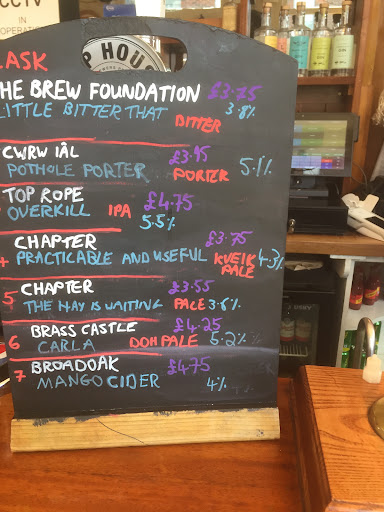 CCTV
IN
OPERATION
CASK
P HOUS
THE BREW FOUNDATION £3.75
LITTLE BITTER THAT BITTER 3.8%
CWRW IÂL £3.95
POTHOLE PORTER PORTER 5.1%
TOP ROPE £4.75
OVERKILL IPA 5.5%
CHAPTER £3.75
PRACTICABLE AND USEFUL KVEIK PALE 4.3%
5 CHAPTER £3.55
THE HAY IS WAITING PALE 3.6%
6 BRASS CASTLE £4.25
CARLA DDH PALE 5.2%
7 BROADOAK £4.75
MANGO CIDER 4%